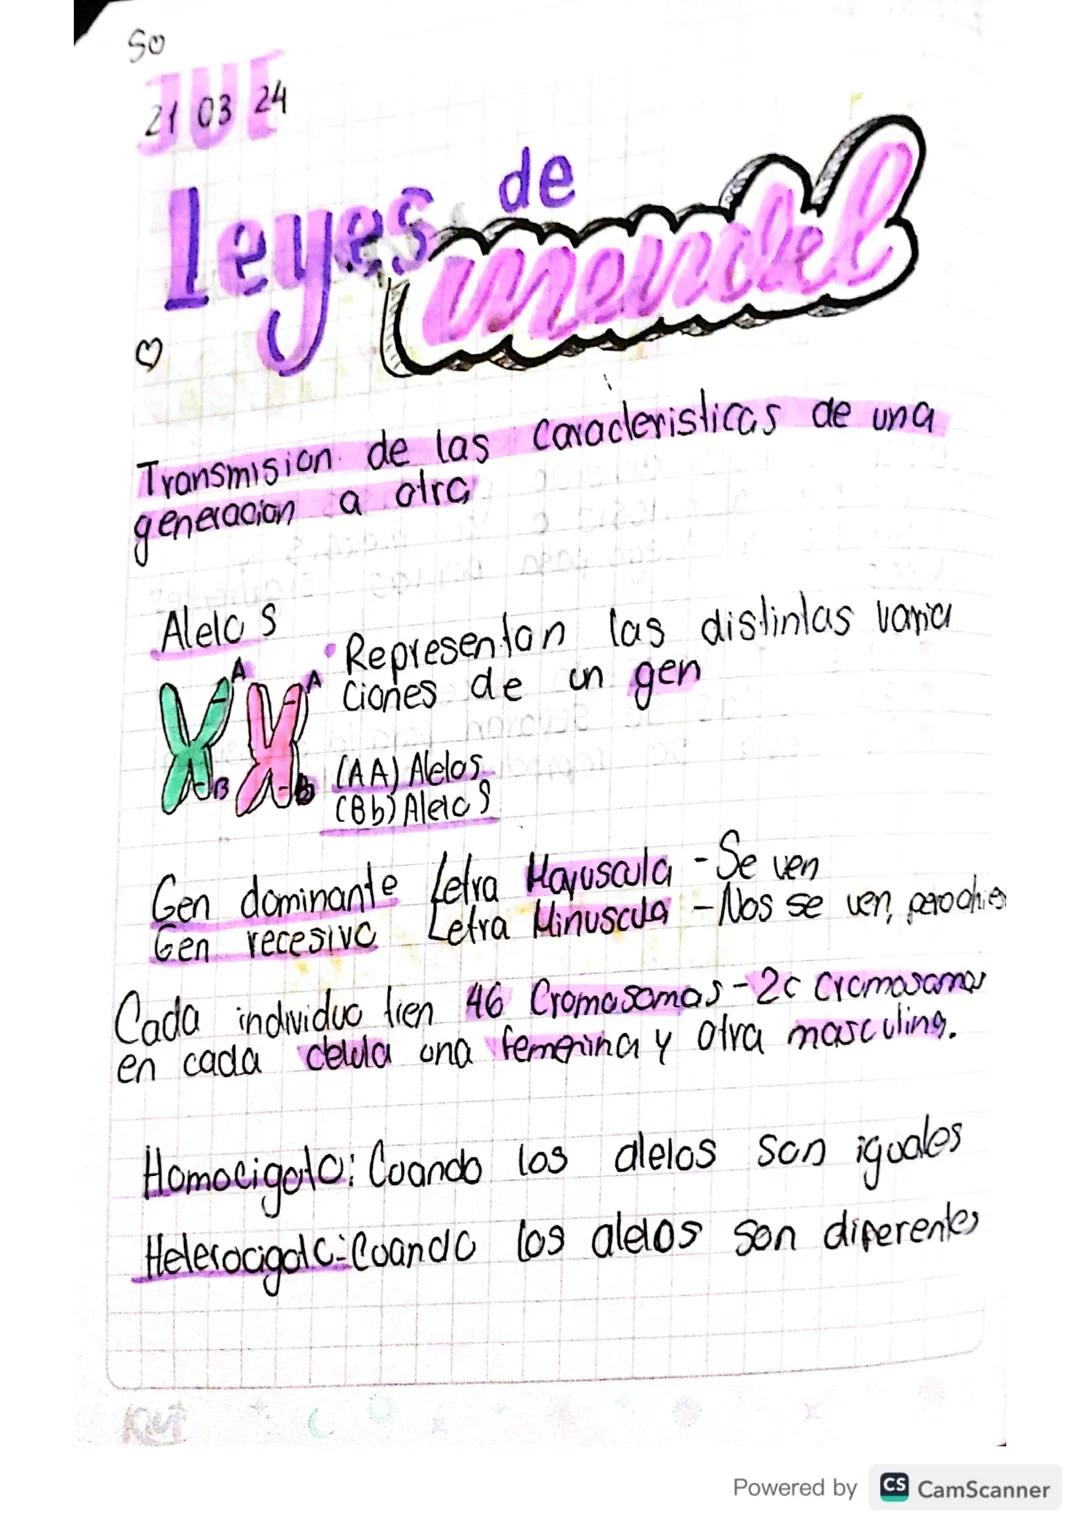 So
JUE
21 03 24
Leyes de
mendel
Transmision de las caracteristicas de una
generacion a otra
Alelos
• Representan las distintas varia
ciones de un gen
A A
B b
(AA) Alelos
(Bb) Alelos
Gen dominante Letra Mayuscula - Se ven
Gen recesivo Letra Minuscula - Nos se ven, pero
Cada individuo tien 46 Cromosomas - 2c cromosomas
en cada celula una femenina y otra masculina.
Homocigoto: Cuando los alelos son iguales
Heterocigoto: Cuando los alelos son diferentes
Powered by CS CamScanner